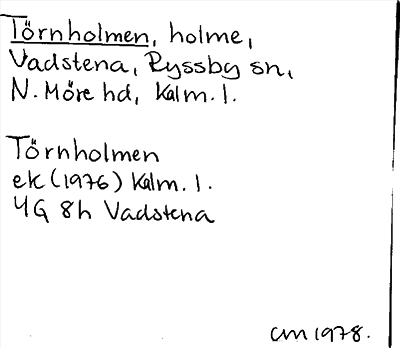 Törnholmen, holme,
Vadstena, Ryssby sn,
N. Möre hd, Kalm. l.
Törnholmen
ek (1976) Kalm. l.
4G 8h Vadstena
CM 1978.